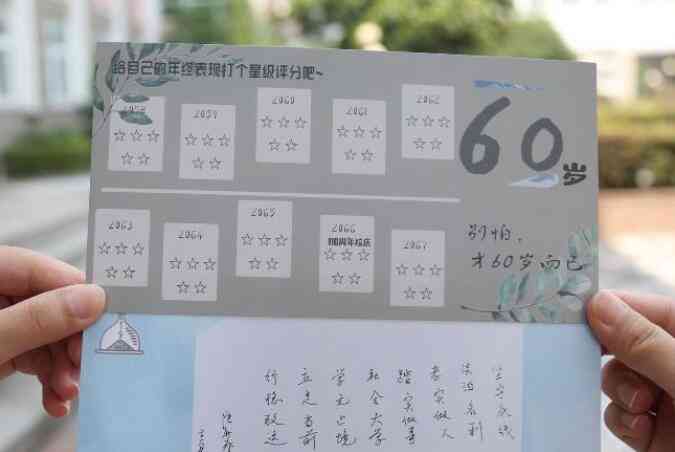 给自己的年终表现打个星级评分吧~
2058
2059
2060
2061
2062
60岁
2063
2064
2065
2066
110周年校庆
2067
别怕,
才60岁而已
坚守底线
淡泊名利
老实做人
踏实做事
社会大学
学无止境
立足当前
行稳致远